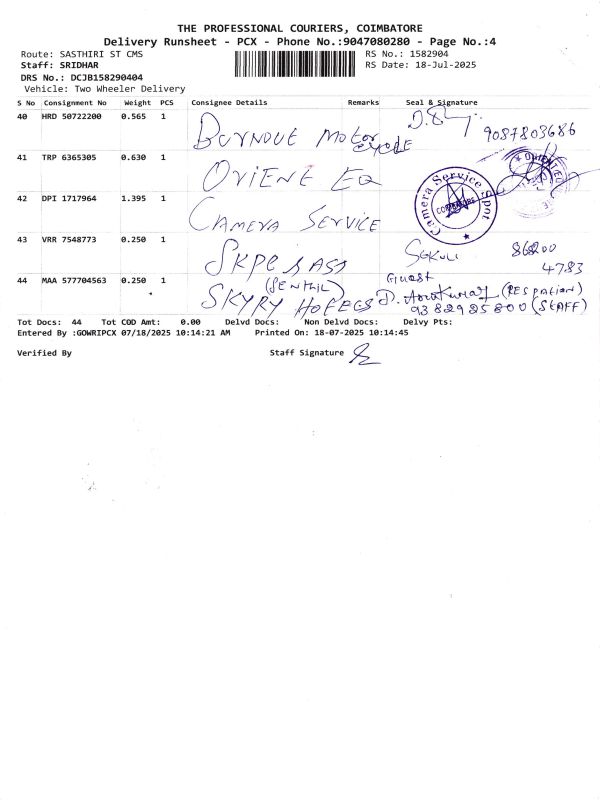 THE PROFESSIONAL COURIERS, COIMBATORE
Delivery Runsheet - PCX - Phone No.:9047080280 - Page No.:4
Route: SASTHIRI ST CMS RS No.: 1582904
Staff: SRIDHAR RS Date: 18-Jul-2025
DRS No.: DCJB158290404
Vehicle: Two Wheeler Delivery
S No Consignment No Weight PCS Consignee Details Remarks Seal & Signature
40 HRD 50722200 0.565 1 BURNOUT MOTOR 9087803686
41 TRP 6365305 0.630 1 ORIENT EQ
42 DPI 1717964 1.395 1 CAMERA SERVICE
Camera Service Spot
COIMBATORE
43 VRR 7548773 0.250 1 86800
4783
44 MAA 577704563 0.250 1 (SENTHIL) Guest
SKYRY
9382925800 (STAFF)
Tot Docs: 44 Tot COD Amt: 0.00 Delvd Docs: Non Delvd Docs: Delvy Pts:
Entered By :GOWRIPCX 07/18/2025 10:14:21 AM Printed On: 18-07-2025 10:14:45
Verified By Staff Signature